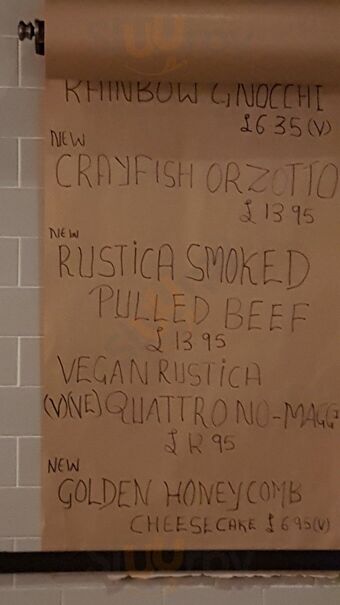 RAINBOW GNOCCHI
£6 35 (V)
NEW
CRAYFISH ORZOTTO
£ 13 95
NEW
RUSTICA SMOKED
PULLED BEEF
£ 13 95
VEGAN RUSTICA
(V)(VE) QUATTRO NO-MAGG
£ 12 95
NEW
GOLDEN HONEYCOMB
CHEESECAKE £ 6 95 (V)